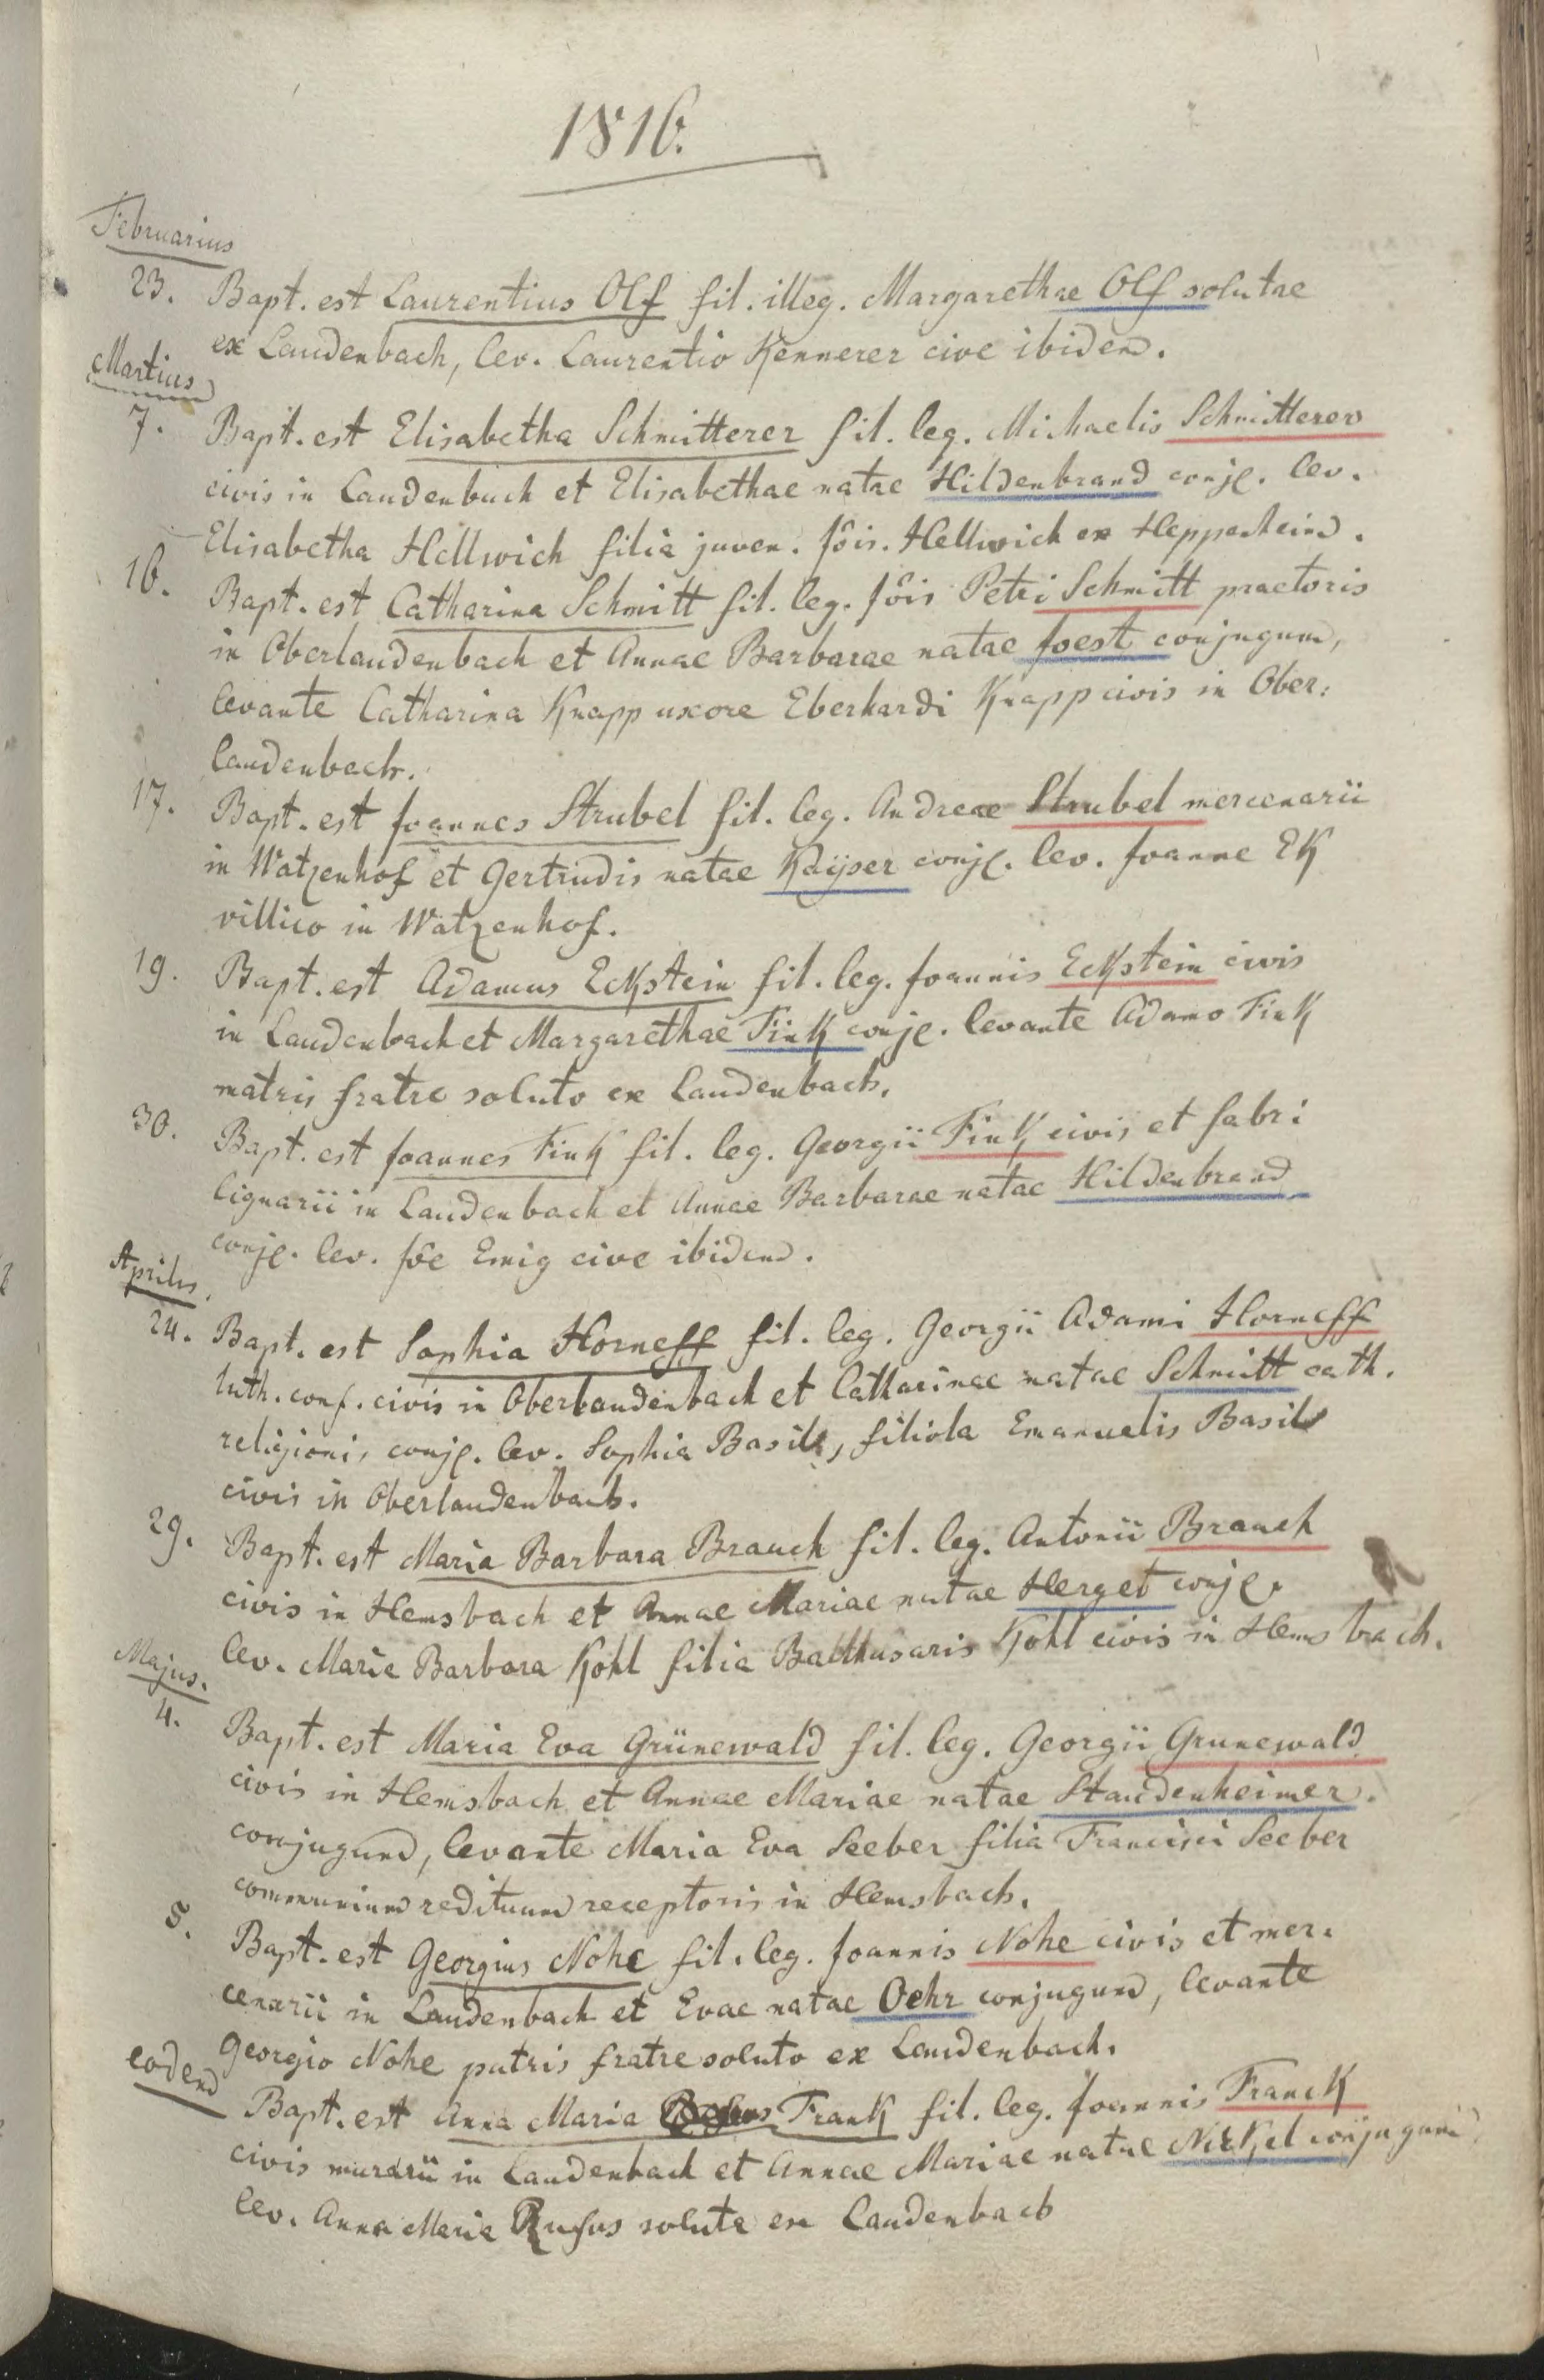 1816.
Februarius
23. Bapt. est Laurentius Olf fil. illeg. Margarethae Olf solutae
ex Laudenbach, lev. Laurentio Kennerer cive ibidem.
Martius
7. Bapt. est Elisabetha Schmitterer fil. leg. Michaelis Schmitterer
civis in Laudenbach et Elisabethae natae Hildenbrand conjg. lev.
Elisabetha Hellwich filia juven. Jôis. Hellwich ex Heppenheim.
16. Bapt. est Catharina Schmitt fil. leg. Jôis Petri Schmitt praetoris
in Oberlaudenbach et Annae Barbarae natae Joest conjugum,
levante Catharina Knapp uxore Eberhardi Knapp civis in Ober:
laudenbach.
17. Bapt. est Joannes Strubel fil. leg. Andreae Strubel mercenarii
in Watzenhof et Gertrudis natae Kaÿser conjg. lev. Joanne EK
villico in Watzenhof.
19. Bapt. est Adamus Eckstein fil. leg. Joannis Eckstein civis
in Laudenbach et Margarethae Fink conjg. levante Adamo Fink
matris fratre soluto ex Laudenbach.
30. Bapt. est Joannes Fink fil. leg. Georgii Fink civis et fabri
lignarii in Laudenbach et Annae Barbarae natae Hildenbrand
conjg. lev. Jôe Emig cive ibidem.
Aprilis.
24. Bapt. est Sophia Horneff fil. leg. Georgii Adami Horneff
luth. conf. civis in Oberlaudenbach et Catharinae natae Schmitt cath.
religionis conjg. lev. Sophia Basile, filiola Emanuelis Basile
civis in Oberlaudenbach.
29. Bapt. est Maria Barbara Brauch fil. leg. Antonii Brauch
civis in Hemsbach et Annae Mariae natae Herget conjg.
lev. Maria Barbara Kohl filia Balthasaris Kohl civis in Hemsbach.
Majus.
4. Bapt. est Maria Eva Grünewald fil. leg. Georgii Grunewald
civis in Hemsbach et Annae Mariae natae Staudenheimer.
conjugum, levante Maria Eva Seeber filia Francisci Seeber
communium redituum receptoris in Hemsbach.
5. Bapt. est Georgius Nohe fil. leg. Joannis Nohe civis et mer:
cenarii in Laudenbach et Evae natae Oehr conjugum, levante
Georgio Nohe patris fratre soluto ex Laudenbach.
eodem Bapt. est Anna Maria Frank fil. leg. Joannis Franck
civis murarii in Laudenbach et Annae Mariae natae Nickel conjugum
lev. Anna Maria Rufus soluta ex Laudenbach